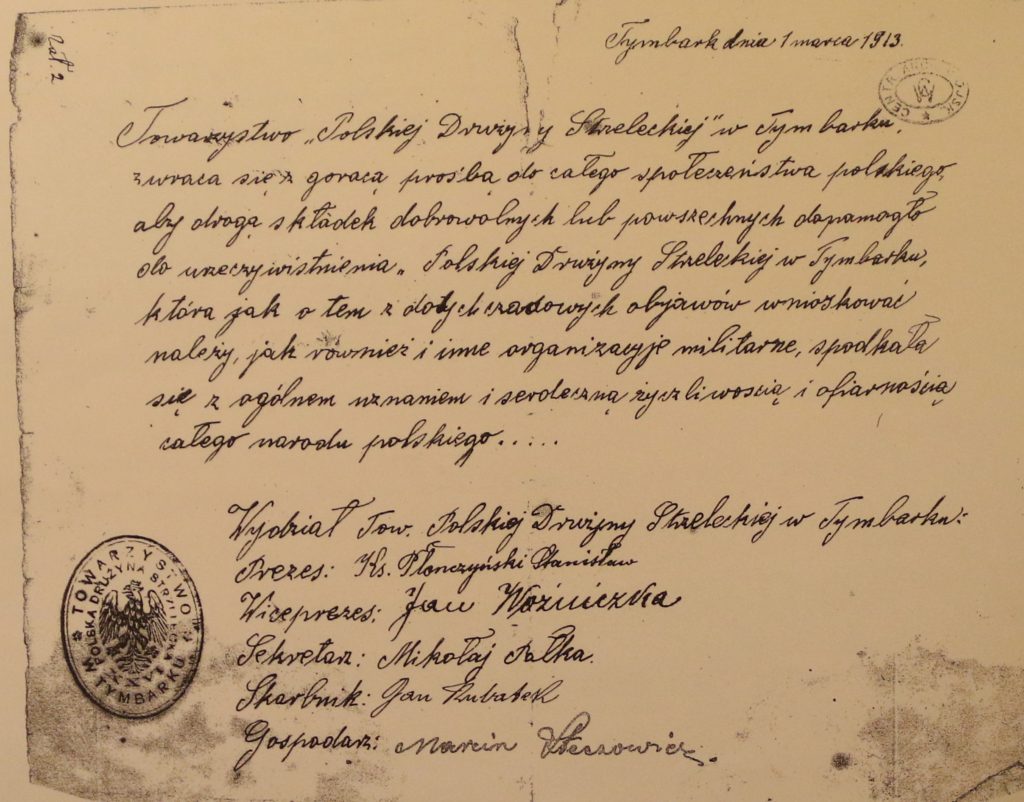 Zał. 2
Tymbark dnia 1 marca 1913.
CENTR. WOJSK.
Towarzystwo „Polskiej Drużyny Streleckiej" w Tymbarku,
zwraca się z gorącą prośbą do całego społeczeństwa polskiego,
aby drogą składek dobrowolnych lub powszechnych dopamogło
do urzeczywistnienia „Polskiej Drużyny Strzeleckiej w Tymbarku,
która jak o tem z dotychczasowych objawów wnioskować
należy, jak rownież i inne organizacyje militarne, spodkała
się z ogólnem uznaniem i serdeczną życzliwoscią i ofiarnością
całego narodu polskiego.....
Wydział Tow. Polskiej Drużyny Strzeleckiej w Tymbarku:
Prezes: Ks. Płonczyński Stanisław
Wiceprezes: Jan Woźniczka
Sekretarz: Mikołaj Palka.
Skarbnik: Jan Kubatek
Gospodarz: Marcin
TOWARZYSTWO
POLSKA DRUŻYNA STRZELECKA
XXVI
W TYMBARKU